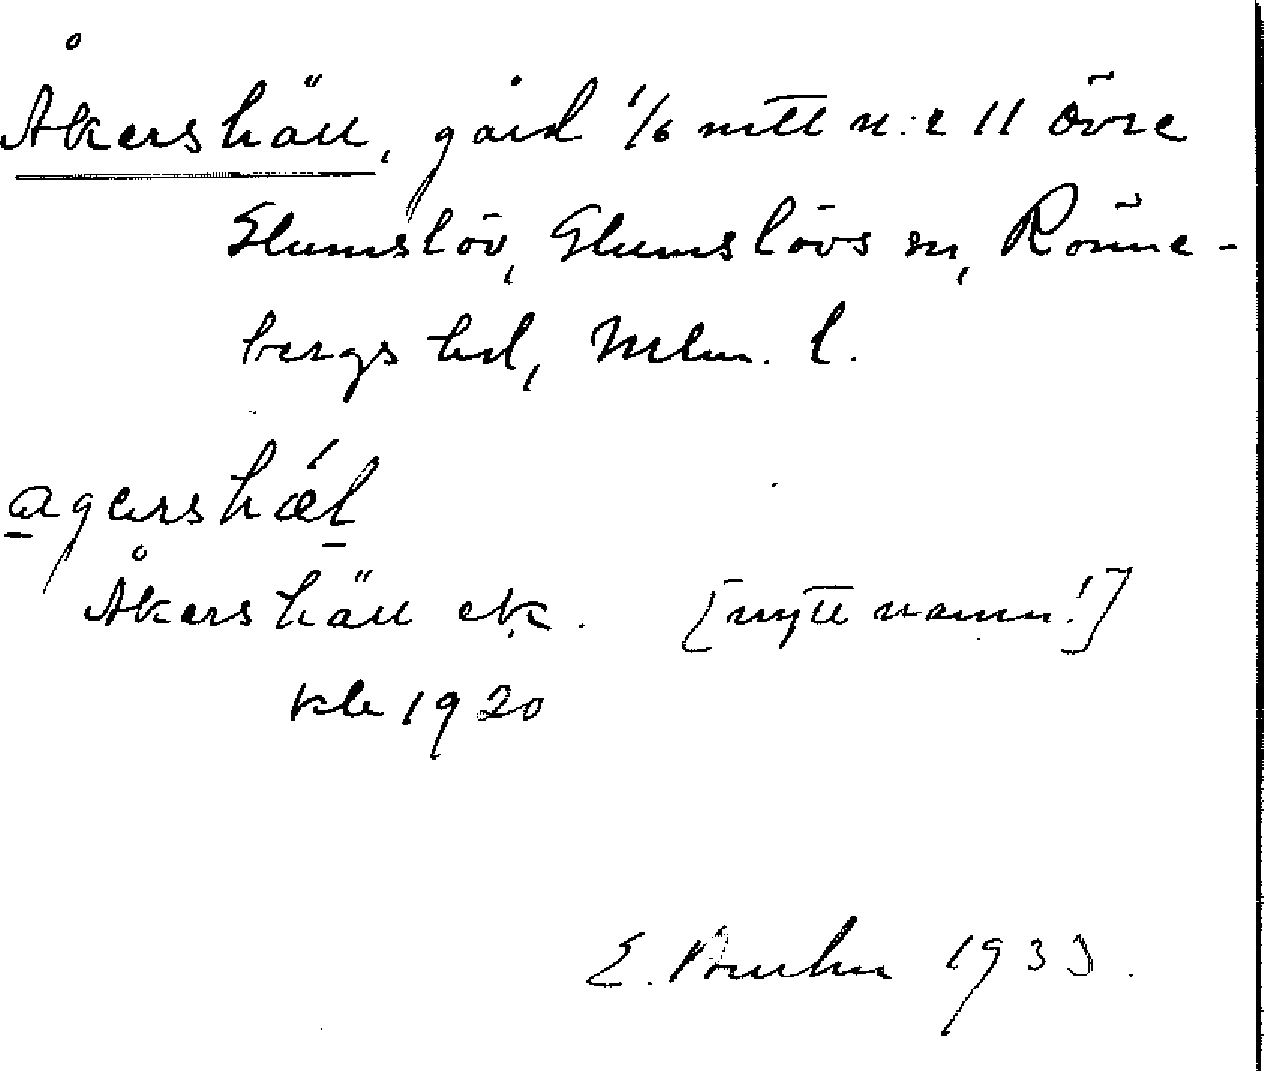 Åkershäll, gård 1/6 mtl n:r 11 Övre
Glumslöv, Glumslövs sn, Rönne-
bergs hd, Mlm. l.
agershäl
Åkershäll ek. [nytt namn!]
kle 1920
E. Bruhn 1933.